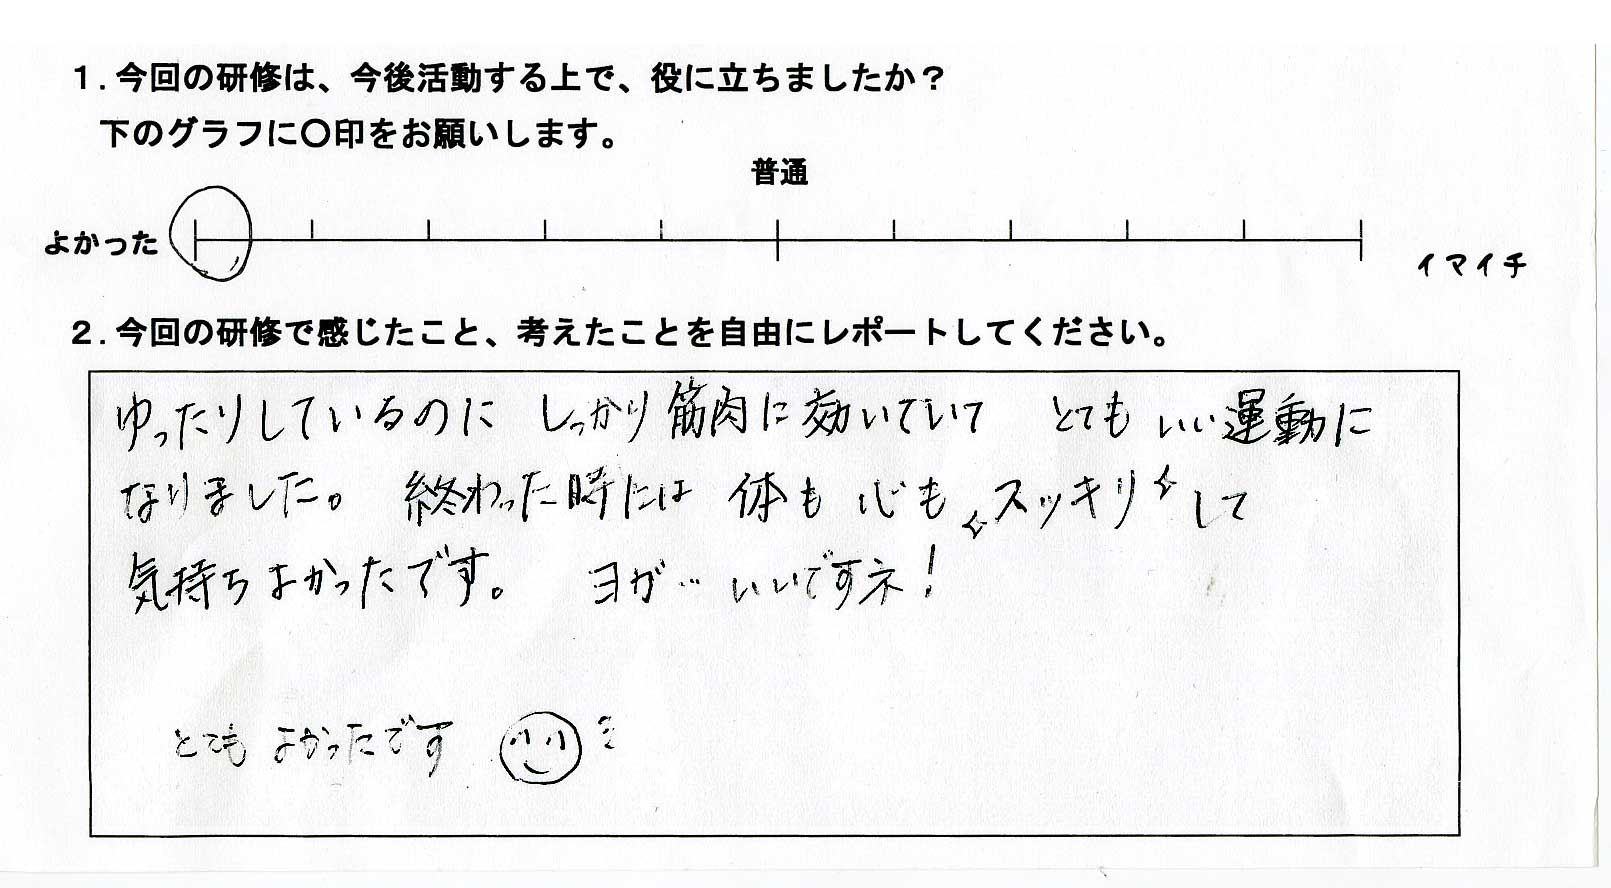 1.今回の研修は、今後活動する上で、役に立ちましたか？
下のグラフに〇印をお願いします。
普通
よかった
イマイチ
2.今回の研修で感じたこと、考えたことを自由にレポートしてください。
ゆったりしているのに しっかり筋肉に効いていて とても いい運動に
なりました。 終わった時には 体も 心も スッキリ して
気持ちよかったです。 ヨガ… いいですネ！
とても よかったです